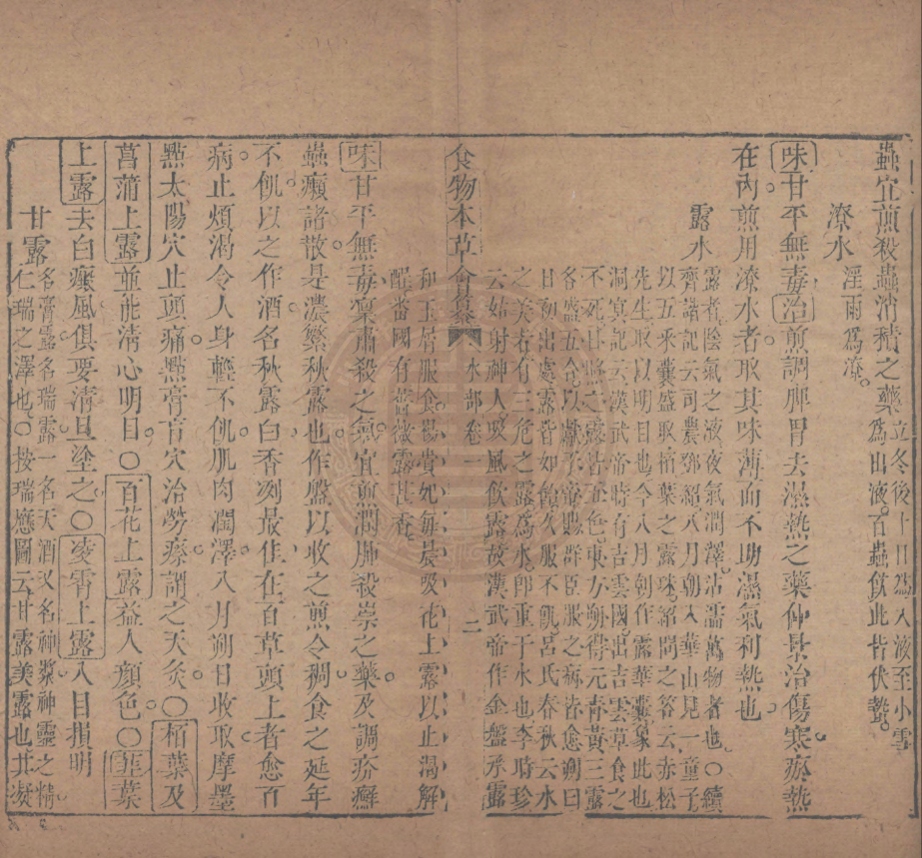 蟲宜煎殺蟲消積之藥立冬後十日為入液至小雪
為出液百蟲飲此皆伏蟄
潦水淫雨為潦
味甘平無毒治煎調脾胃去濕熱之藥仲景治傷寒瘀熱
在內煎用潦水者取其味薄而不助濕氣利熱也
露水露者陰氣之液夜氣潤澤沾濡萬物者也○續
齊諧記云司農鄧紹八月朝入華山見一童子
以五采囊盛取栢葉之露珠紹問之答云赤松
先生取以明目也今八月朝作露華囊象此也
洞冥記云漢武帝時有吉雲國出吉雲草食之
不死日照之露皆五色東方朔得元青黃三露
各盛五合以獻于帝賜群臣服之病皆愈朔曰
日初出處露皆如飴久服不飢呂氏春秋云水
之美者有三危之露為水即重于水也李時珍
云姑射神人吸風飲露故漢武帝作金盤承露
食物本草會纂 水部卷一 二
和玉屑服食楊貴妃每晨吸花上露以止渴解
酲番國有薔薇露甚香
味甘平無毒稟肅殺之氣宜煎潤肺殺祟之藥及調疥癬
蟲癩諸散是濃繁秋露也作盤以收之煎令稠食之延年
不飢以之作酒名秋露白香冽最佳在百草頭上者愈百
病止煩渴令人身輕不飢肌肉潤澤八月朔日收取摩墨
點太陽穴止頭痛點膏肓穴治勞瘵謂之天灸○栢葉及
菖蒲上露並能清心明目○百花上露益人顏色○韭葉
上露去白癜風俱要清旦塗之○凌霄上露入目損明
甘露名膏露名瑞露一名天酒又名神漿神靈之精
仁瑞之澤也○按瑞應圖云甘露美露也其凝